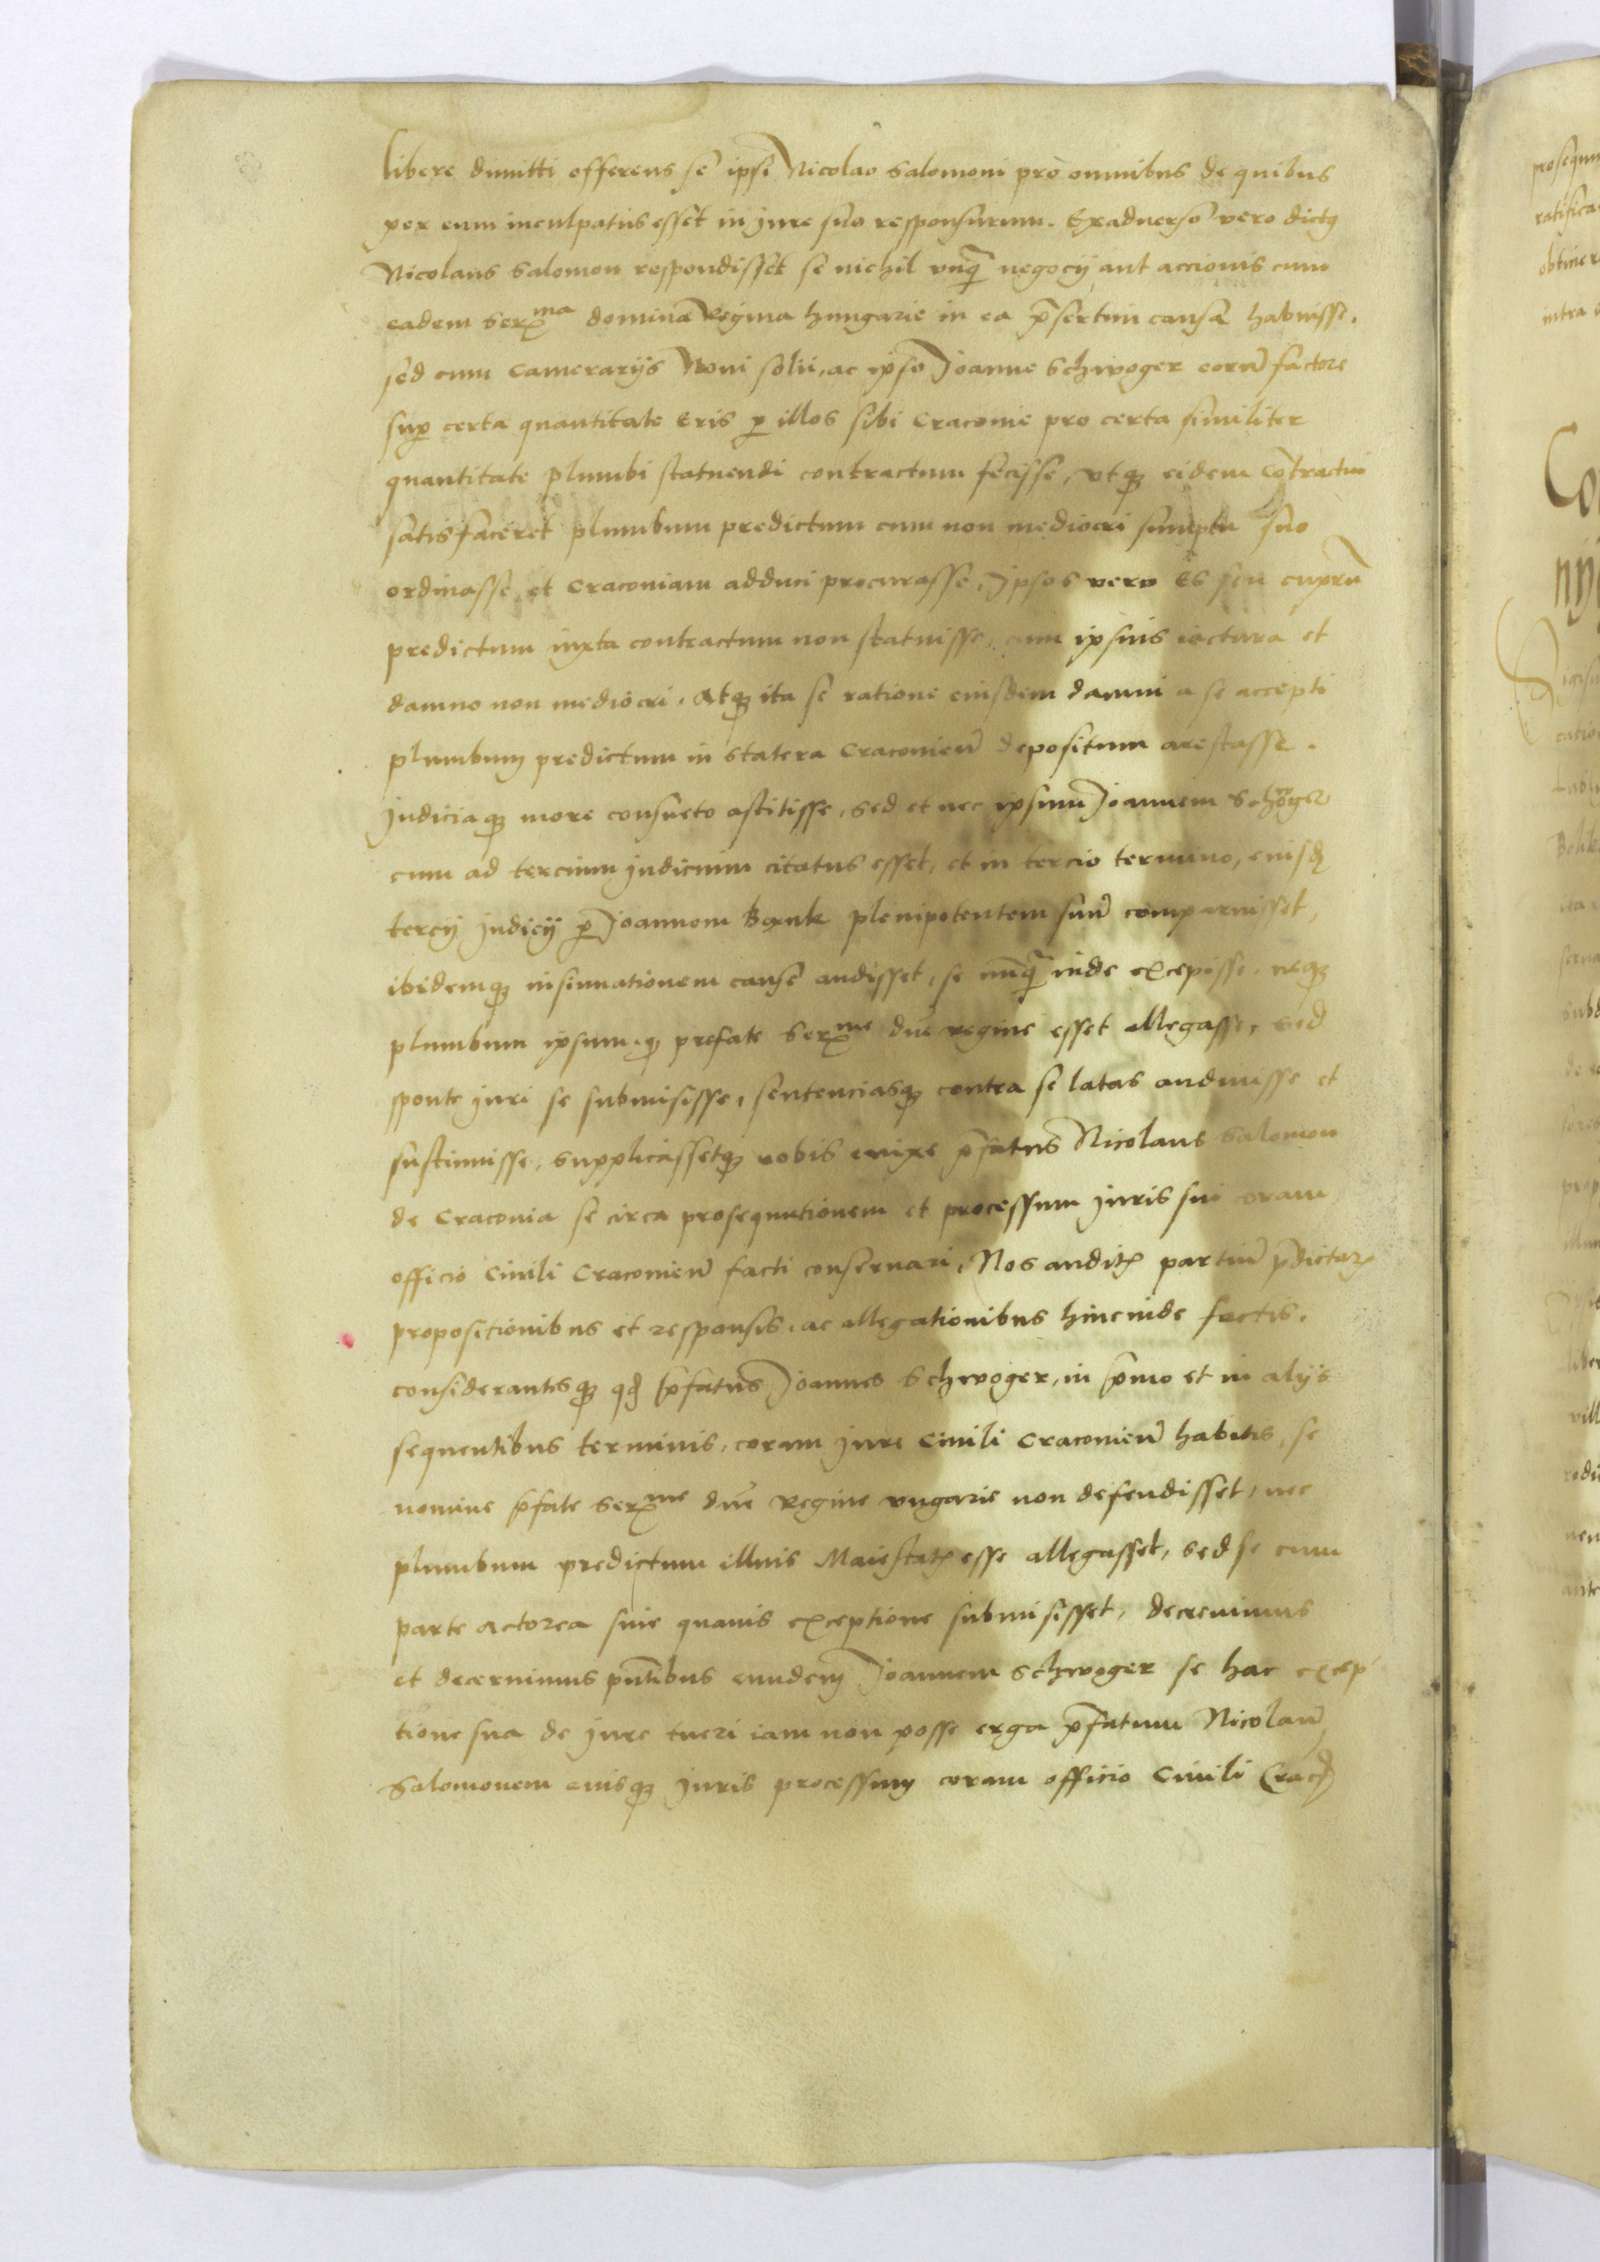 libere dimitti offerens se ipsi Nicolao Salomoni pro omnibus de quibus
per eum inculpatus esset in jure suo responsurum. Exaduerso vero dictꝰ
Nicolaus Salomon respondisset se nichil vnq̃ negocij aut accionis cum
eadem Serᵐᵃ domina Regina hungarie in ea p̃sertim causa habuisse.
sed cum Camerarijs Noui solij, ac ipso Joanne Schwoger eorũ factore
suꝑ certa quantitate Eris ꝑ illos sibi Craconie pro certa similiter
quantitate plumbi statuendi contractum fecisse, vtqꝫ eidem cõtractui
satisfaceret plumbum predictum cum non mediocri sumptu suo
ordinasse, et Craconiam adduci procurasse, Ipsos vero Es seu cuprũ
predictum iuxta contractum non statuisse, cum ipsius iactura et
damno non mediocri. Atqꝫ ita se ratione eiusdem damni a se accepti
plumbum predictum in statera Craconieñ depositum arestasse.
Judiciaqꝫ more consueto astitisse, sed et nec ipsum Joannem Schöger
cum ad tercium judicium citatus esset, et in tercio termino, eiusđ
tercij judicij ꝑ Joannem Bank plenipotentem suũ comparuisset,
ibidemqꝫ insinuationem cause audisset, se nũq̃ inde excepisse, neqꝫ
plumbum ipsum qꝫ prefate Serᵐᵉ dñe regine esset allegasse, sed
sponte juri se submisisse, sentenciasqꝫ contra se latas audiuisse et
sustinuisse, supplicassetqꝫ nobis enixe p̃fatus Nicolaus Salomon
de Craconia se circa prosequutionem et processum juris sui coram
officio Ciuili Craconieñ facti conseruari, Nos auditꝭ partiũ p̃dictaꝝ
propositionibus et responsis, ac allegationibus hincinde factis.
considerantesqꝫ qđ p̃fatus Joannes Schwoger, in p̃mo et in alijs
sequentibus terminis, coram jure Ciuili Craconieñ habitis, se
nomine p̃fate Serᵐᵉ dñe Regine vngarie non defendisset, nec
plumbum predictum illius Maiestatꝭ esse allegasset, sed se cum
parte actorea sine quauis exceptione submisisset, decreuimus
et decernimus pñtibus eundem Joannem Schwoger se hac excep
tione sua de jure tueri iam non posse erga p̃fatum Nicolaũ
Salomonem eiusqꝫ juris processum coram officio Ciuili Cracꝭ